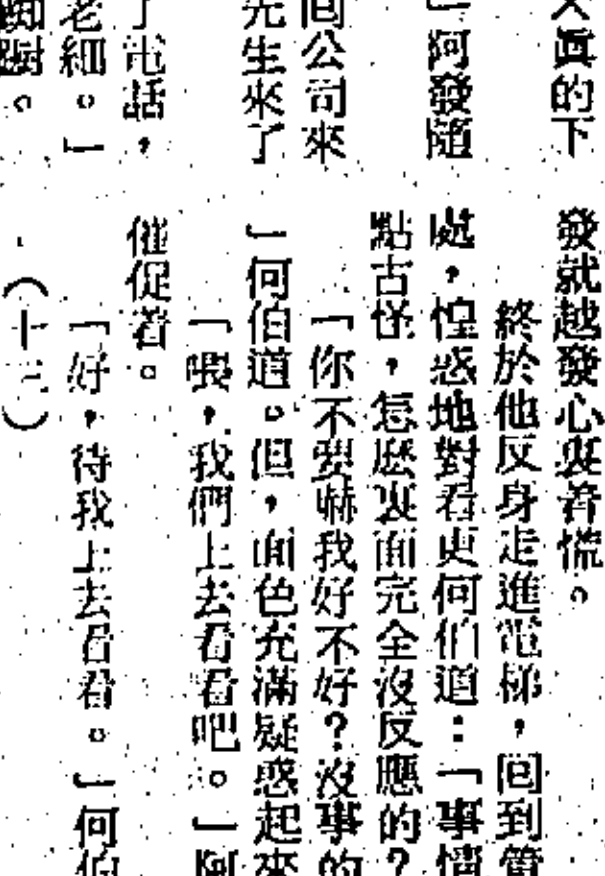 眞的下
」阿發隨
回公司來
先生來了
了電話,
老細。」
蜘蹰。
發就越發心裏着慌。
終於他反身走進電梯,回到管
處,惶惑地對看更何伯道:「事情
點古怪,怎麽裏面完全沒反應的?
「你不要嚇我好不好?沒事的
」何伯道。但,面色充滿疑惑起來
「喂,我們上去看看吧。」阿
催促着。
「好,待我上去看看。」何伯
(十三)